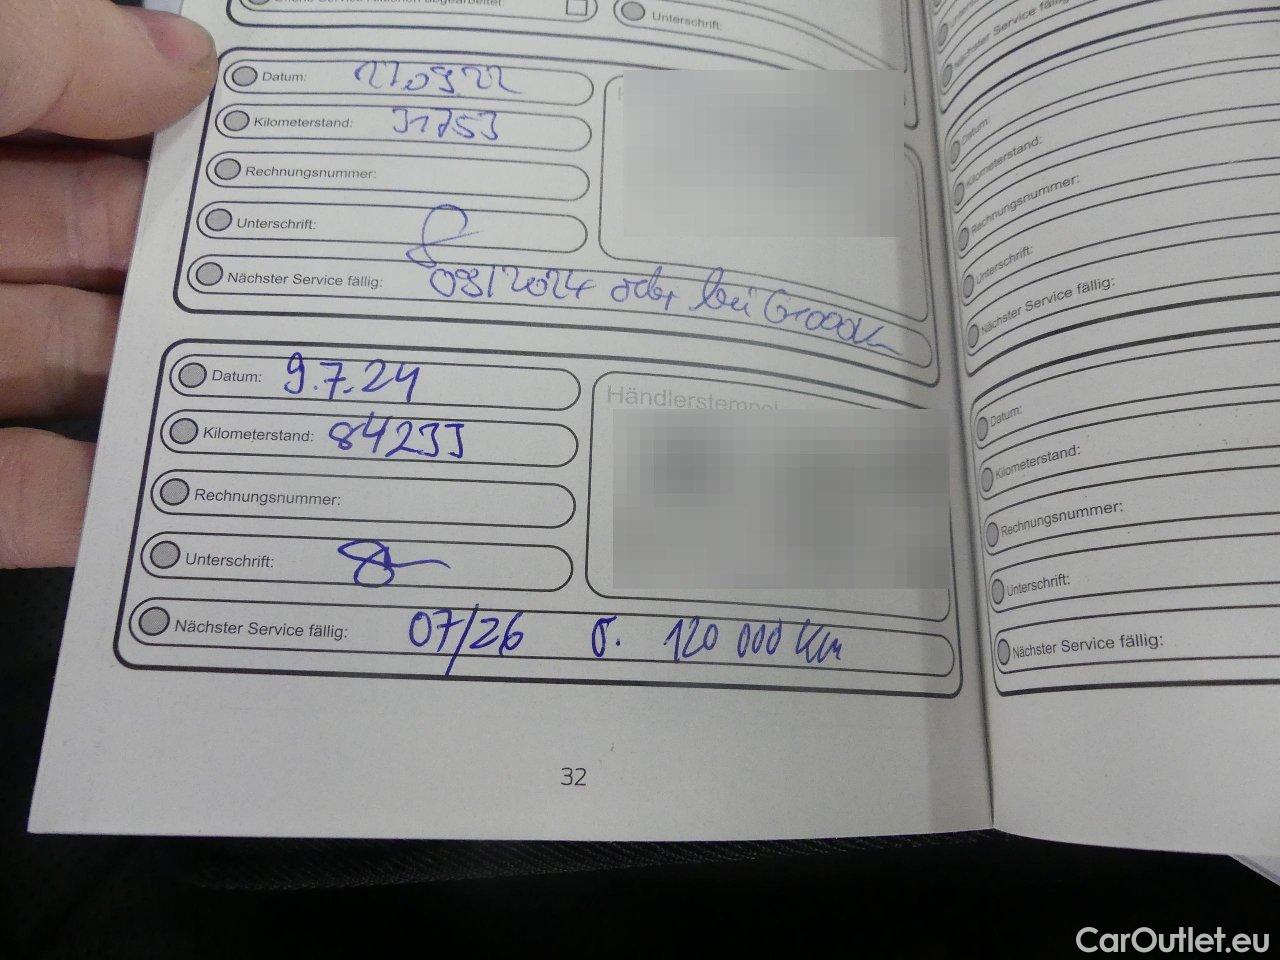 Unterschrift:
Datum: 27.09.22
Kilometerstand: 31753
Rechnungsnummer:
Unterschrift:
Nächster Service fällig: 09/2024 oder bei
Datum: 9.7.24
Händlerstempel
Kilometerstand: 84233
Rechnungsnummer:
Unterschrift:
Nächster Service fällig: 07/26 o. 120 000 Km
32
Nächster Service fällig:
Datum:
Kilometerstand:
Rechnungsnummer:
Unterschrift:
Nächster Service fällig:
Datum:
Kilometerstand:
Rechnungsnummer:
Unterschrift:
Nächster Service fällig:
CarOutlet.eu